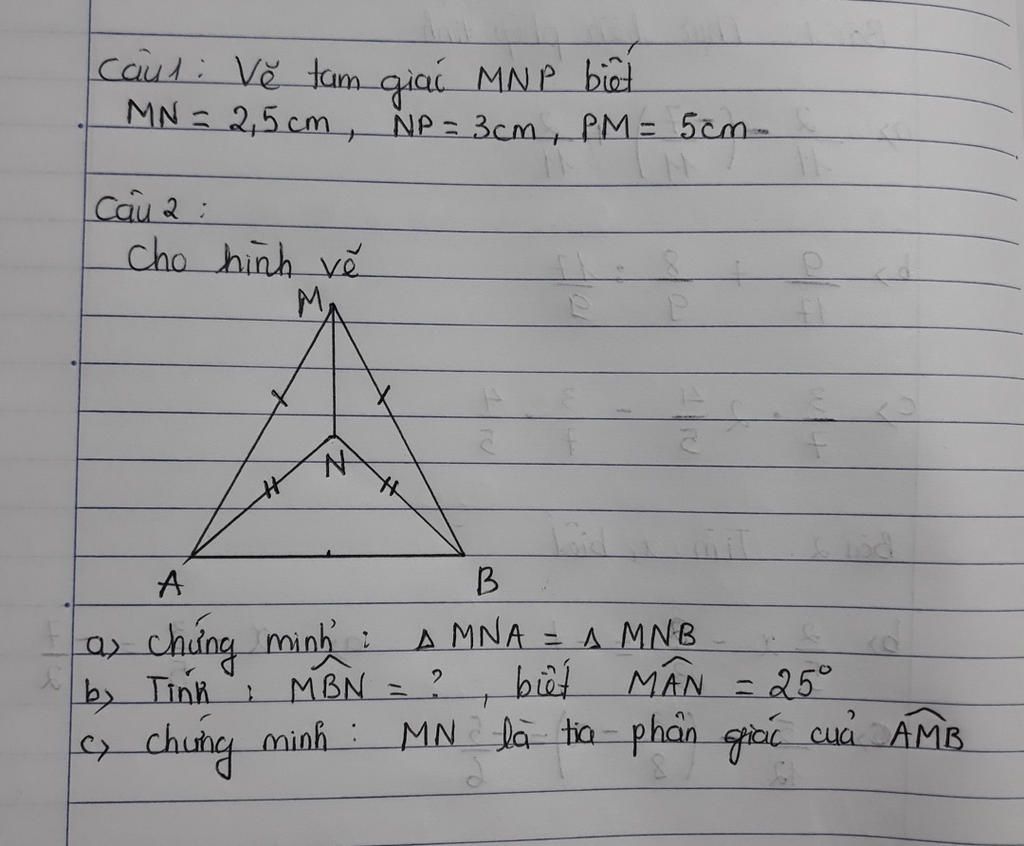 Câu 1: Vẽ tam giác MNP biết
MN = 2,5 cm, NP = 3cm, PM = 5cm.
Câu 2:
Cho hình vẽ
M
N
A
B
a> chứng minh: Δ MNA = Δ MNB
b> Tính: \widehat{MBN} = ?, biết \widehat{MAN} = 25°
c> chứng minh: MN là tia phân giác cuả \widehat{AMB}